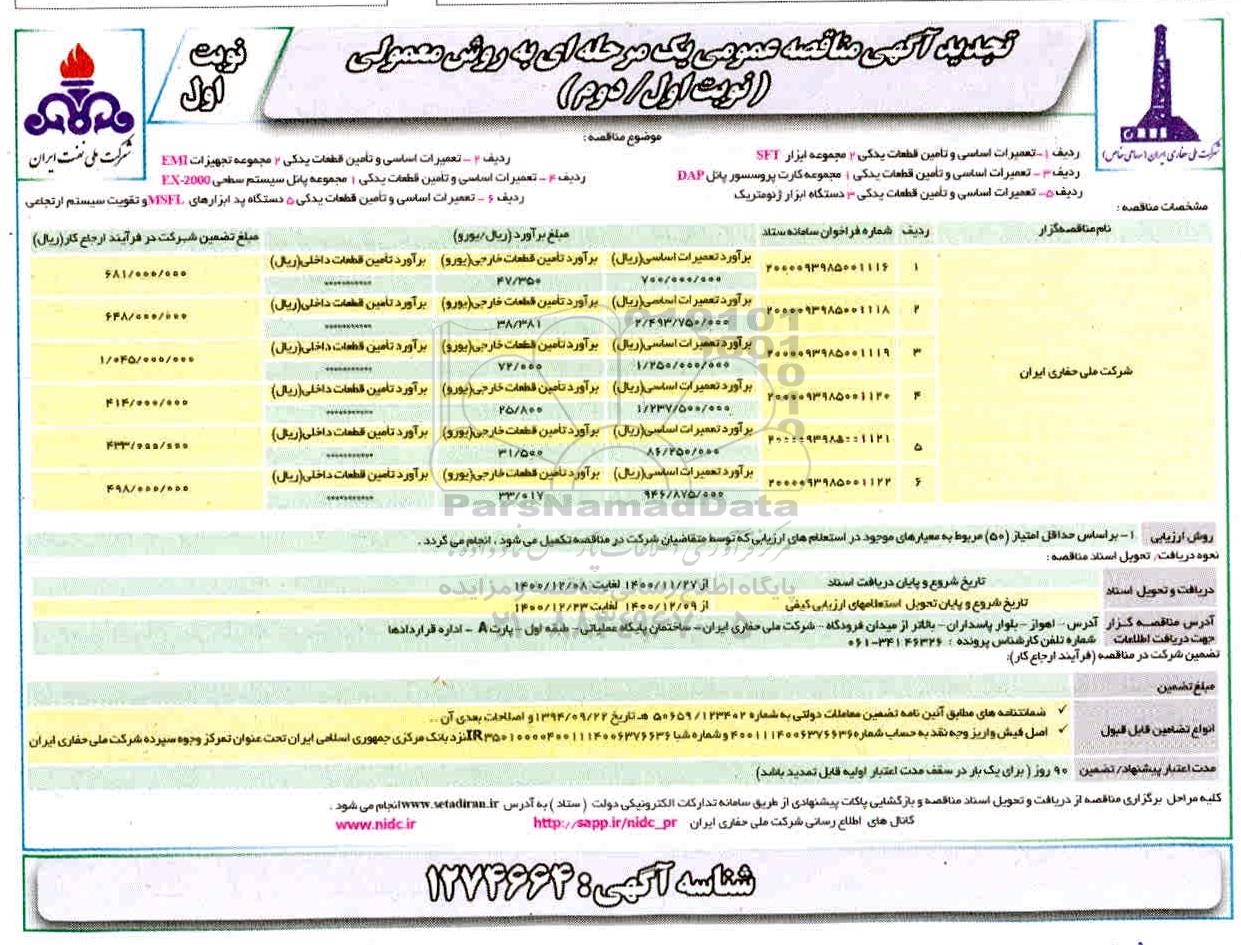 تجدید آگهی مناقصه عمومی یک مرحله ای به روش معمولی
(نوبت اول/ دوم)
نوبت
اول
شرکت ملی نفت ایران
شرکت ملی حفاری ایران (سهامی خاص)
موضوع مناقصه :
ردیف ۱-تعمیرات اساسی و تأمین قطعات یدکی ۲ مجموعه ابزار SFT
ردیف ۲ – تعمیرات اساسی و تأمین قطعات یدکی ۲ مجموعه تجهیزات EMI
ردیف ۳ – تعمیرات اساسی و تأمین قطعات یدکی ۱ مجموعه کارت پروسسور پانل DAP
ردیف ۴ – تعمیرات اساسی و تأمین قطعات یدکی ۱ مجموعه پانل سیستم سطحی EX-2000
ردیف ۵- تعمیرات اساسی و تأمین قطعات یدکی ۳ دستگاه ابزار ژئومتریک
ردیف ۶ – تعمیرات اساسی و تأمین قطعات یدکی ۵ دستگاه پد ابزارهای MSFL و تقویت سیستم ارتجاعی
مشخصات مناقصه :
نام مناقصه‌گزار ردیف شماره فراخوان سامانه ستاد مبلغ برآورد (ریال/یورو) مبلغ تضمین شرکت در فرآیند ارجاع کار(ریال)
شرکت ملی حفاری ایران
۱ ۲۰۰۰۰۹۳۹۸۵۰۰۱۱۱۶ برآورد تعمیرات اساسی(ریال) برآورد تأمین قطعات خارجی(یورو) برآورد تأمین قطعات داخلی(ریال) ۶۸۱/۰۰۰/۰۰۰
۷۰۰/۰۰۰/۰۰۰ ۴۷/۳۵۰ **********
۲ ۲۰۰۰۰۹۳۹۸۵۰۰۱۱۱۸ برآورد تعمیرات اساسی(ریال) برآورد تأمین قطعات خارجی(یورو) برآورد تأمین قطعات داخلی(ریال) ۶۴۸/۰۰۰/۰۰۰
۲/۴۹۳/۷۵۰/۰۰۰ ۳۸/۳۸۱ **********
۳ ۲۰۰۰۰۹۳۹۸۵۰۰۱۱۱۹ برآورد تعمیرات اساسی(ریال) برآورد تأمین قطعات خارجی(یورو) برآورد تأمین قطعات داخلی(ریال) ۱/۰۴۵/۰۰۰/۰۰۰
۱/۲۵۰/۰۰۰/۰۰۰ ۷۲/۰۰۰ **********
۴ ۲۰۰۰۰۹۳۹۸۵۰۰۱۱۲۰ برآورد تعمیرات اساسی(ریال) برآورد تأمین قطعات خارجی(یورو) برآورد تأمین قطعات داخلی(ریال) ۴۱۴/۰۰۰/۰۰۰
۱/۲۳۷/۵۰۰/۰۰۰ ۲۵/۸۰۰ **********
۵ ۲۰۰۰۰۹۳۹۸۵۰۰۱۱۲۱ برآورد تعمیرات اساسی(ریال) برآورد تأمین قطعات خارجی(یورو) برآورد تأمین قطعات داخلی(ریال) ۴۳۳/۰۰۰/۰۰۰
۸۶/۲۵۰/۰۰۰ ۳۱/۵۰۰ **********
۶ ۲۰۰۰۰۹۳۹۸۵۰۰۱۱۲۲ برآورد تعمیرات اساسی(ریال) برآورد تأمین قطعات خارجی(یورو) برآورد تأمین قطعات داخلی(ریال) ۴۹۸/۰۰۰/۰۰۰
۹۴۶/۸۷۵/۰۰۰ ۳۳/۰۱۷ **********
ParsNamadData
روش ارزیابی ۱- براساس حداقل امتیاز (۵۰) مربوط به معیارهای موجود در استعلام های ارزیابی که توسط متقاضیان شرکت در مناقصه تکمیل می شود ، انجام می گردد .
نحوه دریافت/ تحویل اسناد مناقصه :
دریافت و تحویل اسناد
تاریخ شروع و پایان دریافت اسناد از ۱۴۰۰/۱۱/۲۷ لغایت ۱۴۰۰/۱۲/۰۸
تاریخ شروع و پایان تحویل استعلامهای ارزیابی کیفی از ۱۴۰۰/۱۲/۰۹ لغایت ۱۴۰۰/۱۲/۲۳
آدرس مناقصه گزار جهت دریافت اطلاعات
آدرس- اهواز – بلوار پاسداران- بالاتر از میدان فرودگاه – شرکت ملی حفاری ایران- ساختمان پایگاه عملیاتی- طبقه اول – پارت A - اداره قراردادها
شماره تلفن کارشناس پرونده : ۳۴۱۴۶۳۲۶-۰۶۱
تضمین شرکت در مناقصه (فرآیند ارجاع کار):
مبلغ تضمین
انواع تضامین قابل قبول
✓ ضمانتنامه های مطابق آئین نامه تضمین معاملات دولتی به شماره ۱۲۳۴۰۲/ ۵۰۶۵۹ هـ تاریخ ۱۳۹۴/۰۹/۲۲ و اصلاحات بعدی آن ..
✓ اصل فیش واریز وجه نقد به حساب شماره ۴۰۰۱۱۱۴۰۰۶۳۷۶۶۳۶ و شماره شبا IR۳۵۰۱۰۰۰۰۴۰۰۱۱۱۴۰۰۶۳۷۶۶۳۶ نزد بانک مرکزی جمهوری اسلامی ایران تحت عنوان تمرکز وجوه سپرده شرکت ملی حفاری ایران
مدت اعتبار پیشنهاد/ تضمین ۹۰ روز ( برای یک بار در سقف مدت اعتبار اولیه قابل تمدید باشد)
کلیه مراحل برگزاری مناقصه از دریافت و تحویل اسناد مناقصه و بازگشایی پاکات پیشنهادی از طریق سامانه تدارکات الکترونیکی دولت ( ستاد ) به آدرس www.setadiran.ir انجام می شود .
کانال های اطلاع رسانی شرکت ملی حفاری ایران http://sapp.ir/nidc_pr www.nidc.ir
شناسه آگهی: ۱۲۷۴۶۶۴